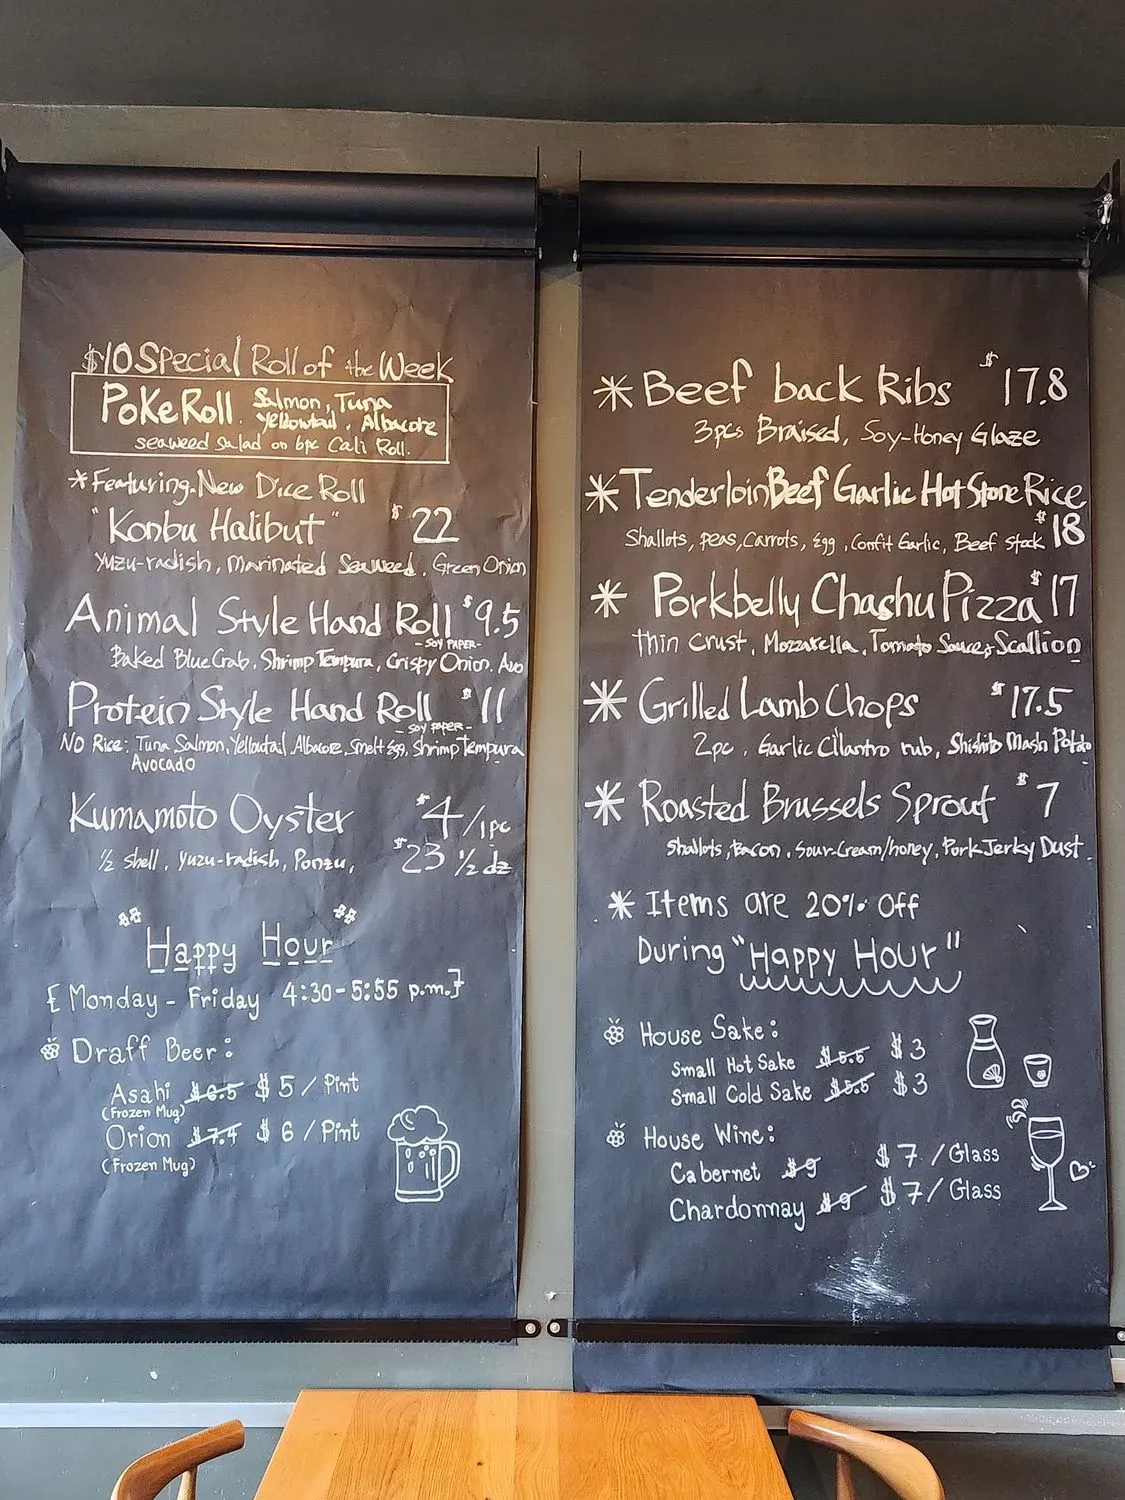 $10 Special Roll of the Week
Poke Roll. Salmon, Tuna
Yellowtail, Albacore
seaweed salad on 6pc Cali Roll.
*Featuring. New Dice Roll
"Konbu Halibut" $22
Yuzu-radish, Marinated Seaweed, Green Onion
Animal Style Hand Roll $9.5
-SOY PAPER-
Baked Blue Crab, Shrimp Tempura, Crispy Onion. Avo
Protein Style Hand Roll $11
-SOY PAPER-
NO Rice: Tuna Salmon, Yellowtail, Albacore, Smelt Egg, Shrimp Tempura
Avocado
Kumamoto Oyster $4/1pc
½ shell, Yuzu-radish, Ponzu, $23 ½ dz
"Happy Hour"
{Monday - Friday 4:30-5:55 p.m.}
Draff Beer:
Asahi $6.5 $5/Pint
(Frozen Mug)
Orion $7.4 $6/Pint
(Frozen Mug)
* Beef back Ribs $17.8
3pcs Braised, Soy-Honey Glaze
* Tenderloin Beef Garlic Hot Stone Rice
Shallots, peas, Carrots, Egg, Confit Garlic, Beef stock $18
* Porkbelly Chashu Pizza $17
Thin Crust, Mozzarella, Tomato Sauce, Scallion
* Grilled Lamb Chops $17.5
2pc, Garlic Cilantro rub, Shishito Mash Potato
* Roasted Brussels Sprout $7
Shallots, Bacon, Sour-Cream/honey, Pork Jerky Dust.
* Items are 20% Off
During "Happy Hour"
House Sake:
Small Hot Sake $5.5 $3
Small Cold Sake $5.5 $3
House Wine:
Cabernet $9 $7/Glass
Chardonnay $9 $7/Glass